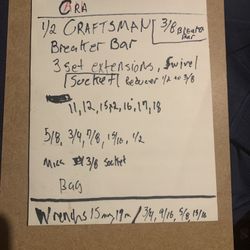 ORA
1/2 CRAFTSMAN
3/8 Breaker Bar
Breaker Bar
3 set extensions, Swivel
Socket Reducer 1/2 to 3/8
11, 12, 15, 16, 17, 18
5/8, 3/4, 7/8, 15/16, 1/2
3/8 socket
Bag
Wrenches 15mm, 19m / 3/4, 9/16, 5/8, 15/16